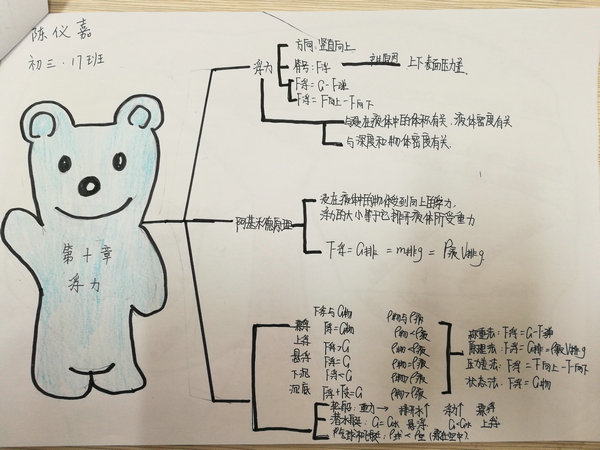 陈仪嘉
初三.17班
第十章
浮力
浮力
方向:竖直向上
符号:F浮
产生原因
上下表面压力差.
F浮=G-F弹
F浮=F向上-F向下
与浸在液体中的体积有关.液体密度有关
与深度和物体密度有关.
阿基米德原理
浸在液体中的物体受到向上的浮力.
浮力的大小等于它排开液体所受重力
F浮=G排=m排g=ρ液V排g.
F浮与G物 ρ物与ρ液
漂浮 F浮=G物 ρ物<ρ液
上浮 F浮>G ρ物<ρ液
悬浮 F浮=G ρ物=ρ液
下沉 F浮<G ρ物>ρ液
沉底 ρ物>ρ液
称重法:F浮=G-F弹
原理法:F浮=G排=ρ液V排g
压力差法:F浮=F向上-F向下
状态法:F浮=G物
轮船:重力→排开水↑ 浮力↑ 漂浮
潜水艇:G=G水 悬浮 G<G水 上浮
气球和飞艇:ρ气<ρ空(漂在空中)